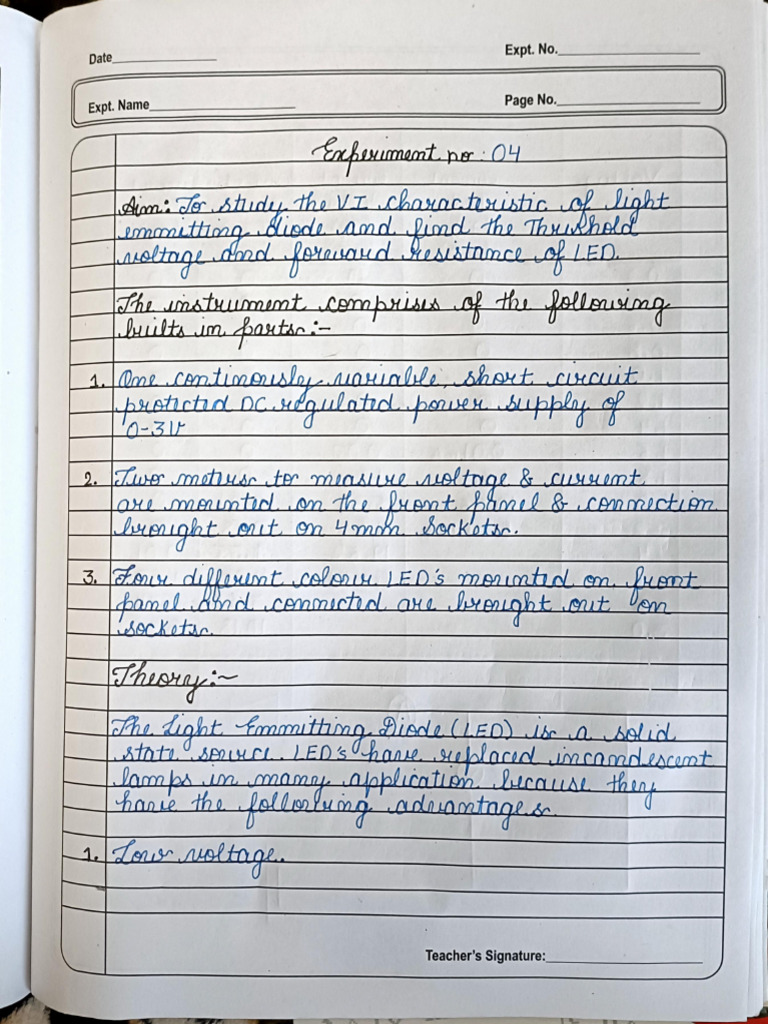 Date
Expt. No.
Expt. Name
Page No.
Experiment no : 04
Aim: To study the V I characteristic of light
emmitting diode and find the Threshold
voltage and foreward resistance of LED.
The instrument comprises of the following
builts in parts:-
1. One continously variable, short circuit
protected DC regulated power supply of
0-3V
2. Two meters to measure voltage & current
are mounted on the front panel & connection
brought out on 4mm Sockets.
3. Four different colour LED's mounted on front
panel and connected are brought out on
sockets.
Theory:-
The Light Emmitting Diode (LED) is a solid
state source. LED's have replaced incandescent
lamps in many application because they
have the following advantages.
1. Low voltage.
Teacher's Signature: